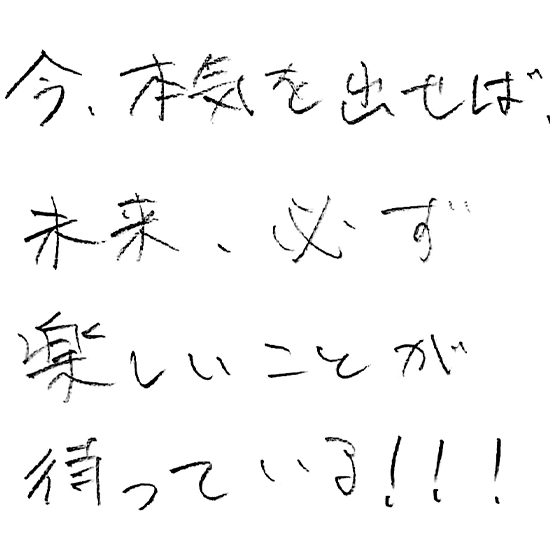 今、本気を出せば、
未来、必ず
楽しいことが
待っている!!!